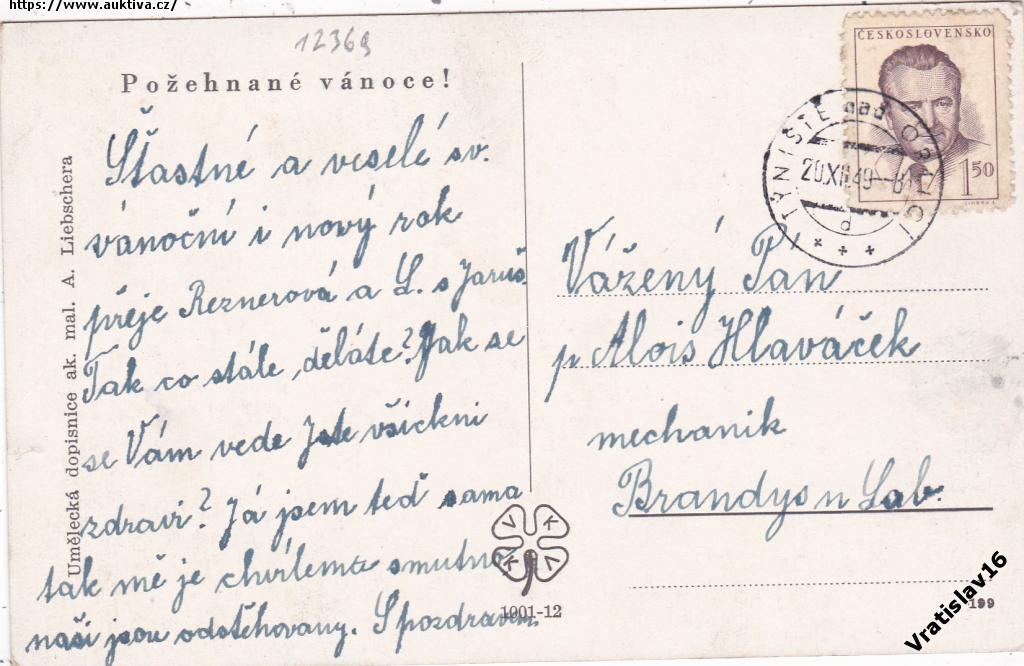 https://www.auktiva.cz/
12369
Požehnané vánoce!
Šťastné a veselé sv.
vánoční i nový rok
přeje Reznerová a L. s Jaruš.
Tak co stále děláte? Jak se
se Vám vede Jste všickni
zdravi? Já jsem teď sama
tak mě je chvílemi smutno
naši jsou odstěhovany. S pozdravem
Umělecká dopisnice ak. mal. A. Liebschera
VKKV
1001-12
ČESKOSLOVENSKO
1 50
TÝNIŠTĚ nad ORLICÍ
20.XII.49
d
Vážený Pan
p Alois Hlaváček
mechanik
Brandys n Lab.
199
Vratislav16